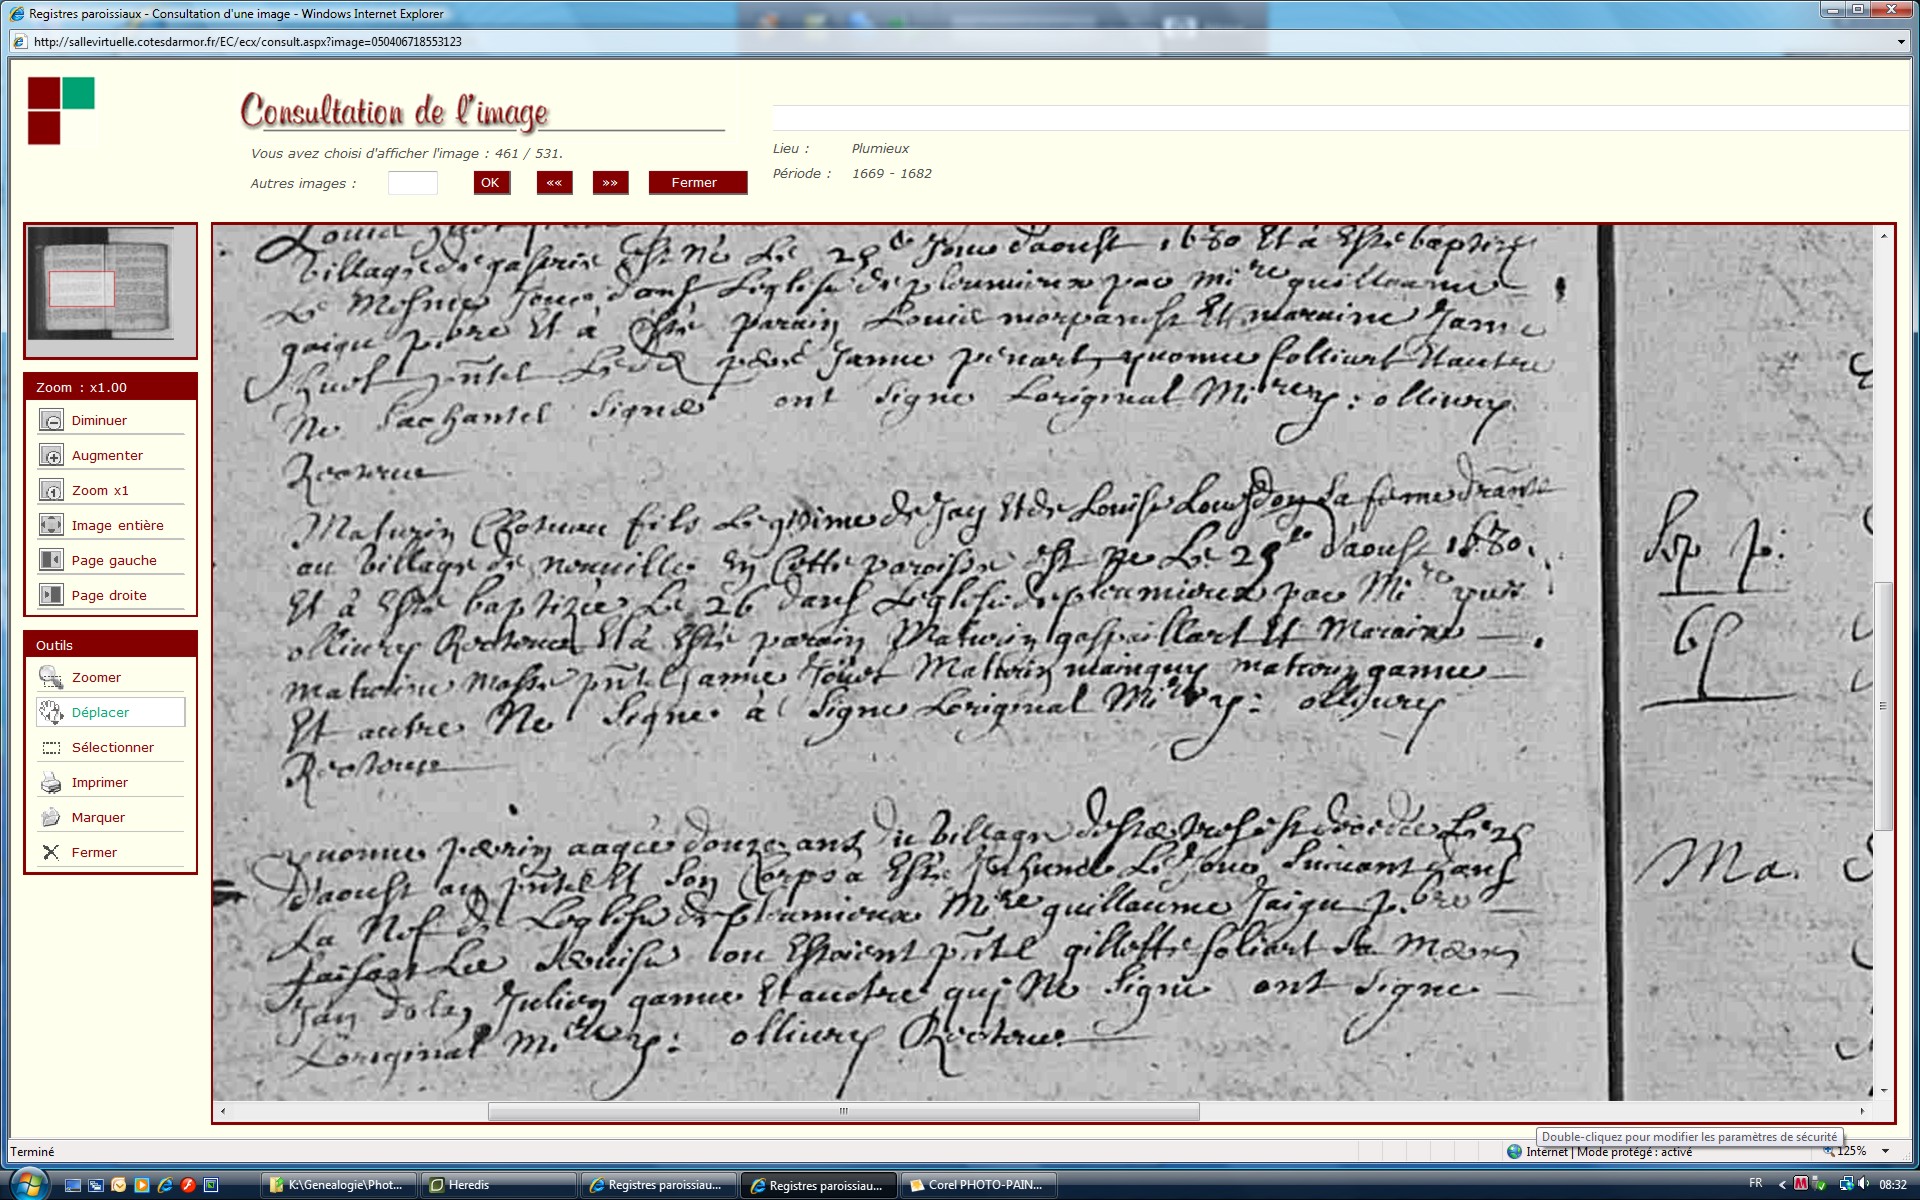 Registres paroissiaux - Consultation d'une image - Windows Internet Explorer
http://sallevirtuelle.cotesdarmor.fr/EC/ecx/consult.aspx?image=050406718553123
Consultation de l'image
Vous avez choisi d'afficher l'image : 461 / 531.
Autres images :
OK
««
»»
Fermer
Lieu : Plumieux
Période : 1669 - 1682
Zoom : x1.00
Diminuer
Augmenter
Zoom x1
Image entière
Page gauche
Page droite
Outils
Zoomer
Déplacer
Sélectionner
Imprimer
Marquer
Fermer
village de est né le 25e jour d'aoust 1680 et a esté baptizé
le mesme jour dans leglise de ploumieux par Mire guillaume
et a esté parain Louis et maraine Janne
pntel Janne penart yvonne folliart et autre
Ne Sachantel Signer ont signe Loriginal Mire : ollivry
Recteur
Maturin fils Legitime de Jan et de Louise sa feme
au village de en cette paroisse est ne Le 25 d'aoust 1680.
Et à Esté baptizée Le 26 dans Leglise de ploumieux par Mire
ollivry Recteur Et à Esté parain Maturin gaspaillart Et Maraine
maturine masse pntel Janne Maturin mainguy maturin ganne
Et autre Ne Signe à Signe Loriginal Mire : ollivry
Recteur
yvonne perrin aagée douze ans du village est decedee Le 25
D'aoust au pntel Et Son Corps a Esté Inhumé Le Jour Suivant dans
La Nef de Leglise de ploumieux Mire guillaume Jaigu pbre
faisant Lou Estoient pntel gillette foliart Sa Mere
Jan Julien ganne Et autre qui Ne Signe ont Signe
Loriginal Mire : ollivry Recteur
Ma.
Double-cliquez pour modifier les paramètres de sécurité
Terminé
Internet | Mode protégé : activé
125%
K:\Genealogie\Phot...
Heredis
Registres paroissiau...
Registres paroissiau...
Corel PHOTO-PAIN...
FR
08:32